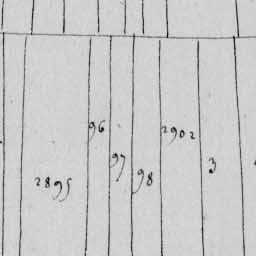 2895
96
97
98
2902
3